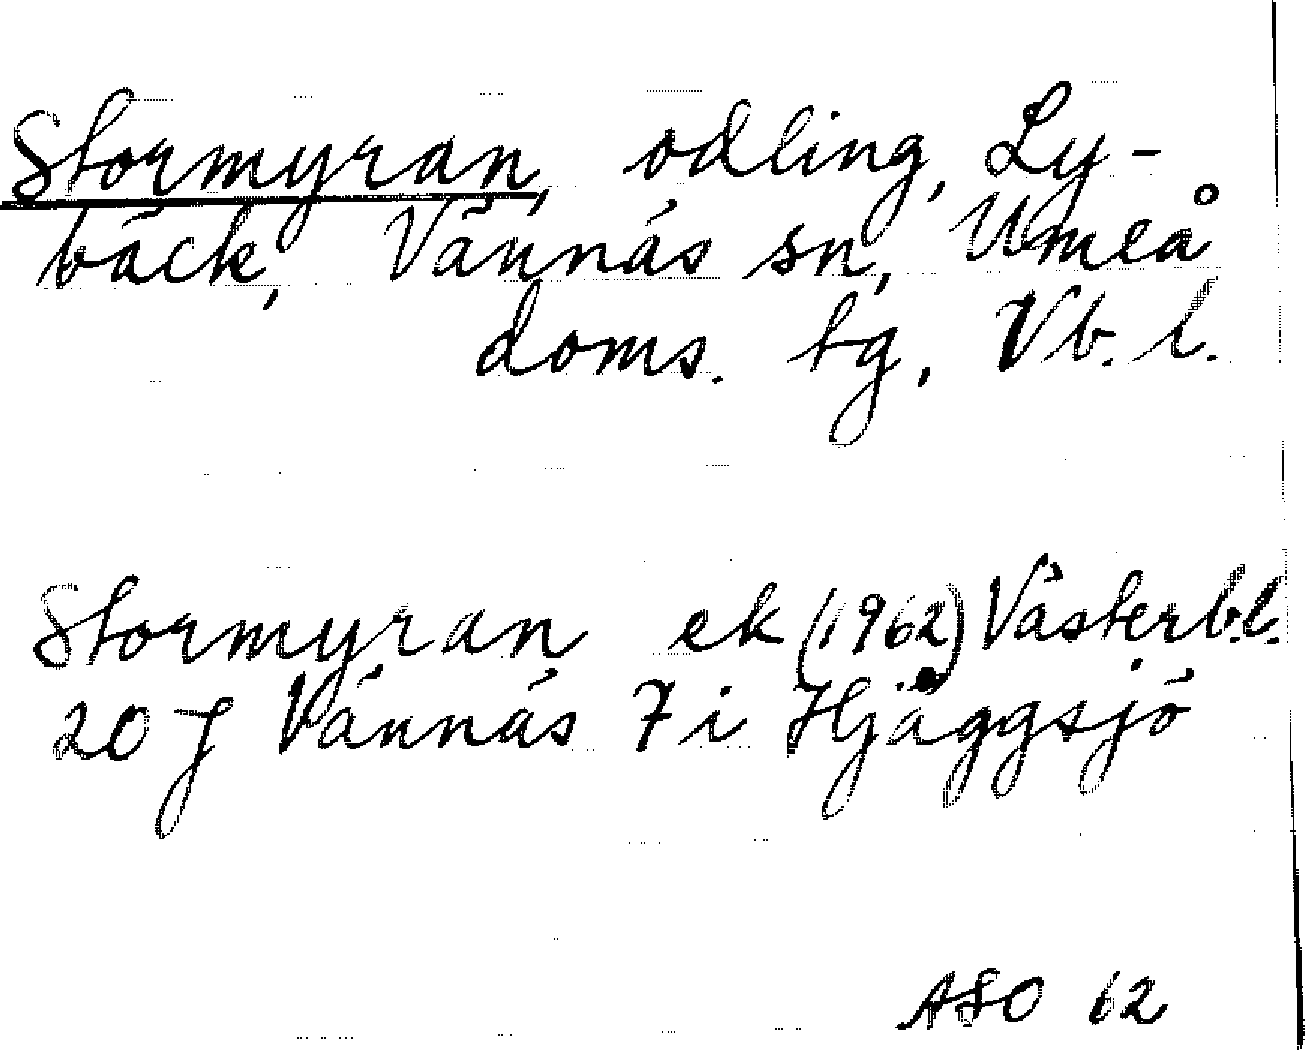 Stormyran, odling, Ly-
bäck, Vännäs sn, Umeå
doms. tg, Vb. l.
Stormyran ek (1962) Västerb.l.
20 J Vännäs 7 i Hjåggsjö
ASO 62